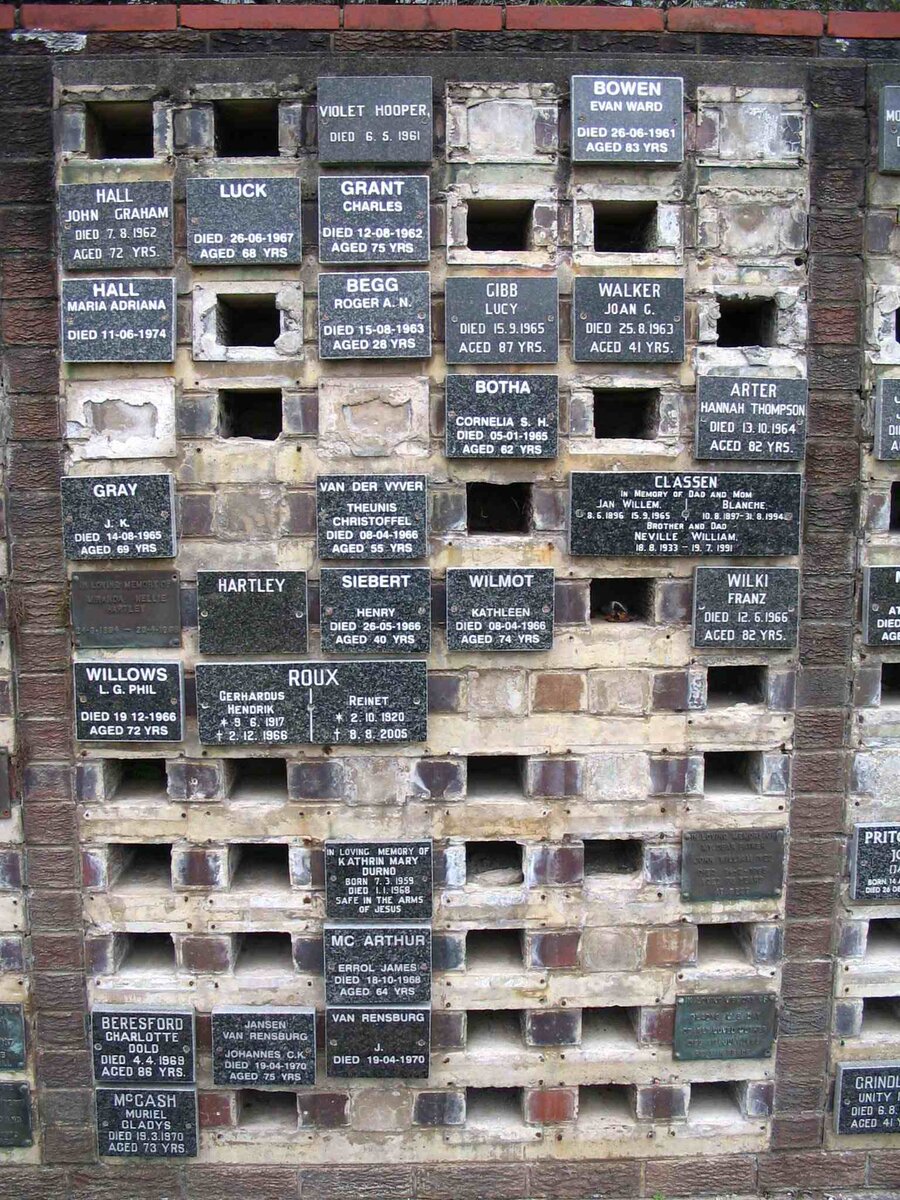 VIOLET HOOPER,
DIED 6.5.1961
BOWEN
EVAN WARD
DIED 26-06-1961
AGED 83 YRS
HALL
JOHN GRAHAM
DIED 7.8.1962
AGED 72 YRS.
LUCK
DIED 26-06-1967
AGED 68 YRS
GRANT
CHARLES
DIED 12-08-1962
AGED 75 YRS
HALL
MARIA ADRIANA
DIED 11-06-1974
BEGG
ROGER A. N.
DIED 15-08-1963
AGED 28 YRS
GIBB
LUCY
DIED 15.9.1965
AGED 87 YRS.
WALKER
JOAN G.
DIED 25.8.1963
AGED 41 YRS.
BOTHA
CORNELIA S. H.
DIED 05-01-1965
AGED 62 YRS
ARTER
HANNAH THOMPSON
DIED 13.10.1964
AGED 82 YRS.
GRAY
J. K.
DIED 14-08-1965
AGED 69 YRS
VAN DER VYVER
THEUNIS
CHRISTOFFEL
DIED 08-04-1966
AGED 55 YRS
CLASSEN
IN MEMORY OF DAD AND MOM
JAN WILLEM. BLANCHE.
8.6.1896 15.9.1965 10.8.1897-31.8.1994
BROTHER AND DAD
NEVILLE WILLIAM.
18.8.1933 - 19.7.1991
IN LOVING MEMORY OF
NELLIE
HARTLEY
HARTLEY
SIEBERT
HENRY
DIED 26-05-1966
AGED 40 YRS
WILMOT
KATHLEEN
DIED 08-04-1966
AGED 74 YRS
WILKI
FRANZ
DIED 12.6.1966
AGED 82 YRS.
WILLOWS
L. G. PHIL
DIED 19 12-1966
AGED 72 YRS
ROUX
GERHARDUS
HENDRIK
* 9.6.1917
† 2.12.1966
REINET
* 2.10.1920
† 8.8.2005
IN LOVING MEMORY OF
KATHRIN MARY
DURNO
BORN 7.3.1959
DIED 1.1.1968
SAFE IN THE ARMS
OF JESUS
IN LOVING MEMORY
MC ARTHUR
ERROL JAMES
DIED 18-10-1968
AGED 64 YRS
BERESFORD
CHARLOTTE
DOLD
DIED 4.4.1969
AGED 86 YRS
JANSEN
VAN RENSBURG
JOHANNES C.K.
DIED 19-04-1970
AGED 75 YRS
VAN RENSBURG
J.
DIED 19-04-1970
McCASH
MURIEL
GLADYS
DIED 19.3.1970
AGED 73 YRS.
PRITC
JO
BORN 14
DIED 26 08
GRINDL
UNITY
DIED 6.8.
AGED 41